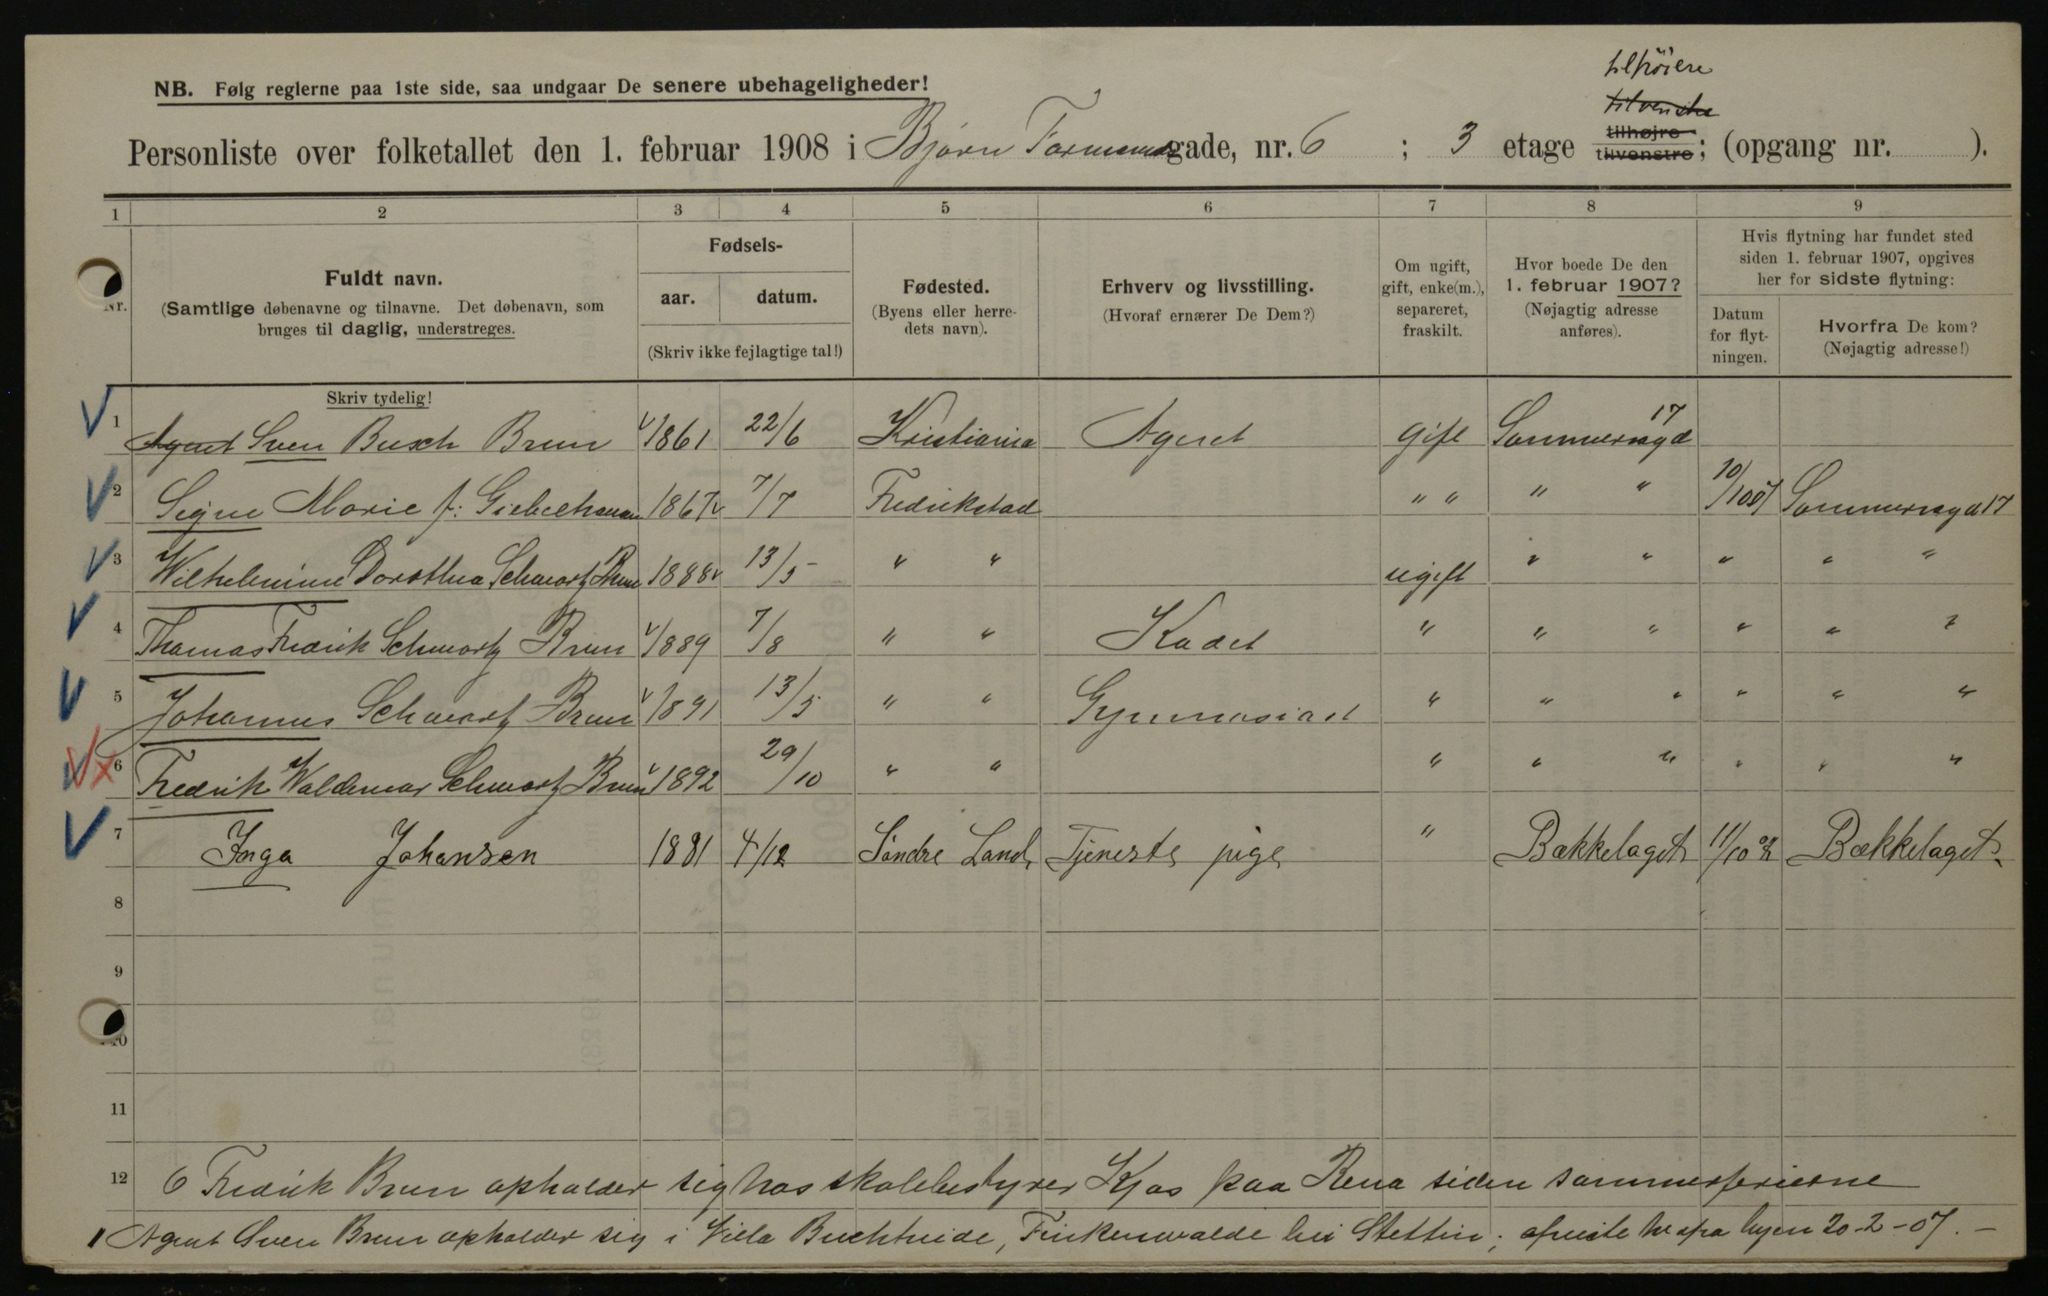 tilhöiere
tilvenstre
NB. Følg reglerne paa 1ste side, saa undgaar De senere ubehageligheder!
tilhøjre
Personliste over folketallet den 1. februar 1908 i Bjørn Farmannsgade, nr. 6 ; 3 etage tilvenstre; (opgang nr. ).
1 2 3 4 5 6 7 8 9
Fuldt navn.
(Samtlige døbenavne og tilnavne. Det døbenavn, som
bruges til daglig, understreges.
Fødsels-
aar. datum.
(Skriv ikke fejlagtige tal!)
Fødested.
(Byens eller herre-
dets navn).
Erhverv og livsstilling.
(Hvoraf ernærer De Dem?)
Om ugift,
gift, enke(m.),
separeret,
fraskilt.
Hvor boede De den
1. februar 1907?
(Nøjagtig adresse
anføres).
Hvis flytning har fundet sted
siden 1. februar 1907, opgives
her for sidste flytning:
Datum
for flyt-
ningen.
Hvorfra De kom?
(Nøjagtig adresse!)
Nr.
Skriv tydelig!
1 Agent Sven Busch Brun 1861 22/6 Kristiania Agent gift Sommersgd 17
2 Signe Marie f: 1867 7/7 Fredrikstad " " " " Sommersgd 17
3 Wilhelmine Dorothea Schwartz Brun 1888 13/5 " " ugift " " " " "
4 Thomas Fredrik Schwartz Brun 1889 7/8 " " Kadet " " " " " "
5 Johannes Schwartz Brun 1891 13/5 " " Gymnasiast " " " " " "
6 Fredrik Waldemar Schwartz Brun 1892 29/10 " " " " " " " "
7 Inga Johansen 1881 4/12 Søndre Land Tjeneste pige " Bækkelaget 11/10 Bækkelaget
8
9
10
11
12 6 Fredrik Brun opholder sig hos skolebestyrer Kjos paa Rena siden sommerferierne
1 Agent Sven Brun opholder sig i Villa Buchheide, Finkenwalde bei Stettin; afreiste byen 20-2-07. –